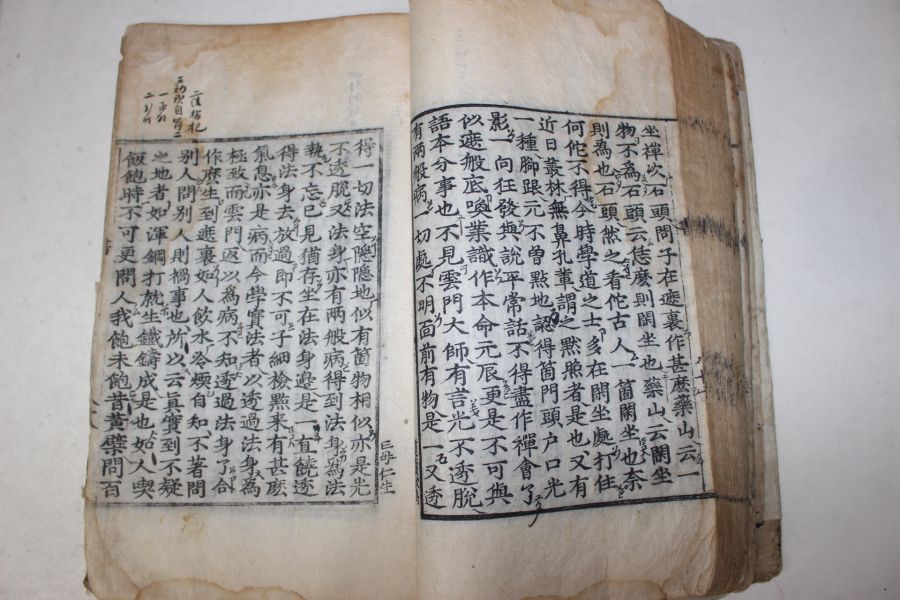 坐禪次石頭問子在遮裏作甚麼藥山云一
物不爲石頭云恁麼則閑坐也藥山云閑坐
則爲也石頭然之看佗古人一箇閑坐也奈
何佗不得今時學道之士多在閑坐處打住
近日叢林無鼻孔輩謂之默照者是也又有
一種脚跟元不曾點地認得箇門頭户口光
影一向狂發與說平常話不得盡作禪會了
似遮般底喚業識作本命元辰更是不可與
語本分事也不見雲門大師有言光不透脫
有兩般病一切處不明面前有物是一又透
得一切法空隱隱地似有箇物相似亦是光
不透脫又法身亦有兩般病得到法身爲法
執不忘己見猶存坐在法身邊是一直饒透
得法身去放過即不可子細檢點來有甚麼
氣息亦是病而今學實法者以透過法身爲
極致而雲門返以爲病不知透過法身了合
作麼生到遮裏如人飲水冷煖自知不著問
別人問別人則禍事也所以云眞實到不疑
之地者如渾鋼打就生鐵鑄成是也如人喫
飯飽時不可更問人我飽未飽昔黃蘗問百